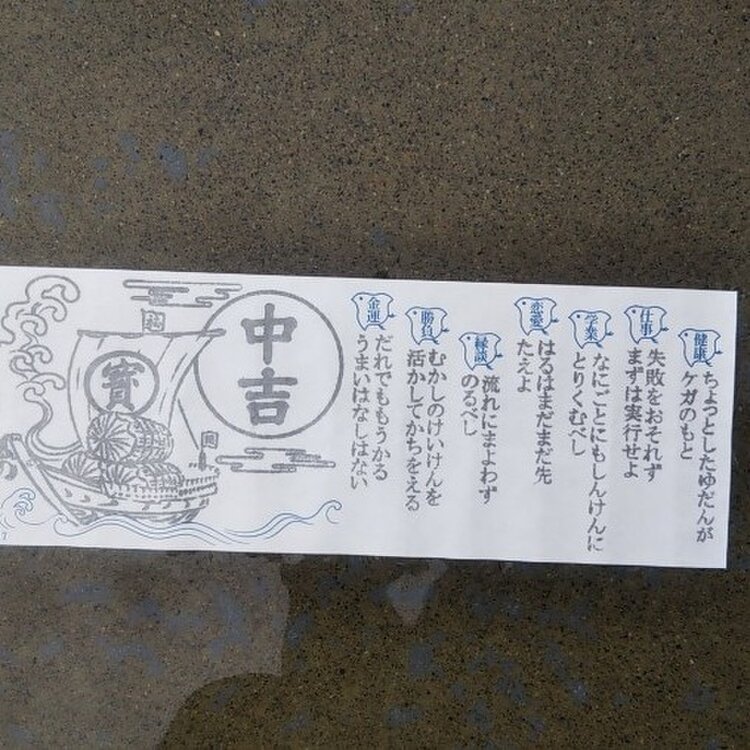 健康
ちょっとしたゆだんが
ケガのもと
仕事
失敗をおそれず
まずは実行せよ
学業
なにごとにもしんけんに
とりくむべし
恋愛
はるはまだまだ先
たえよ
縁談
流れにまよわず
のるべし
勝負
むかしのけいけんを
活かしてかちをえる
金運
だれでももうかる
うまいはなしはない
中吉
寳